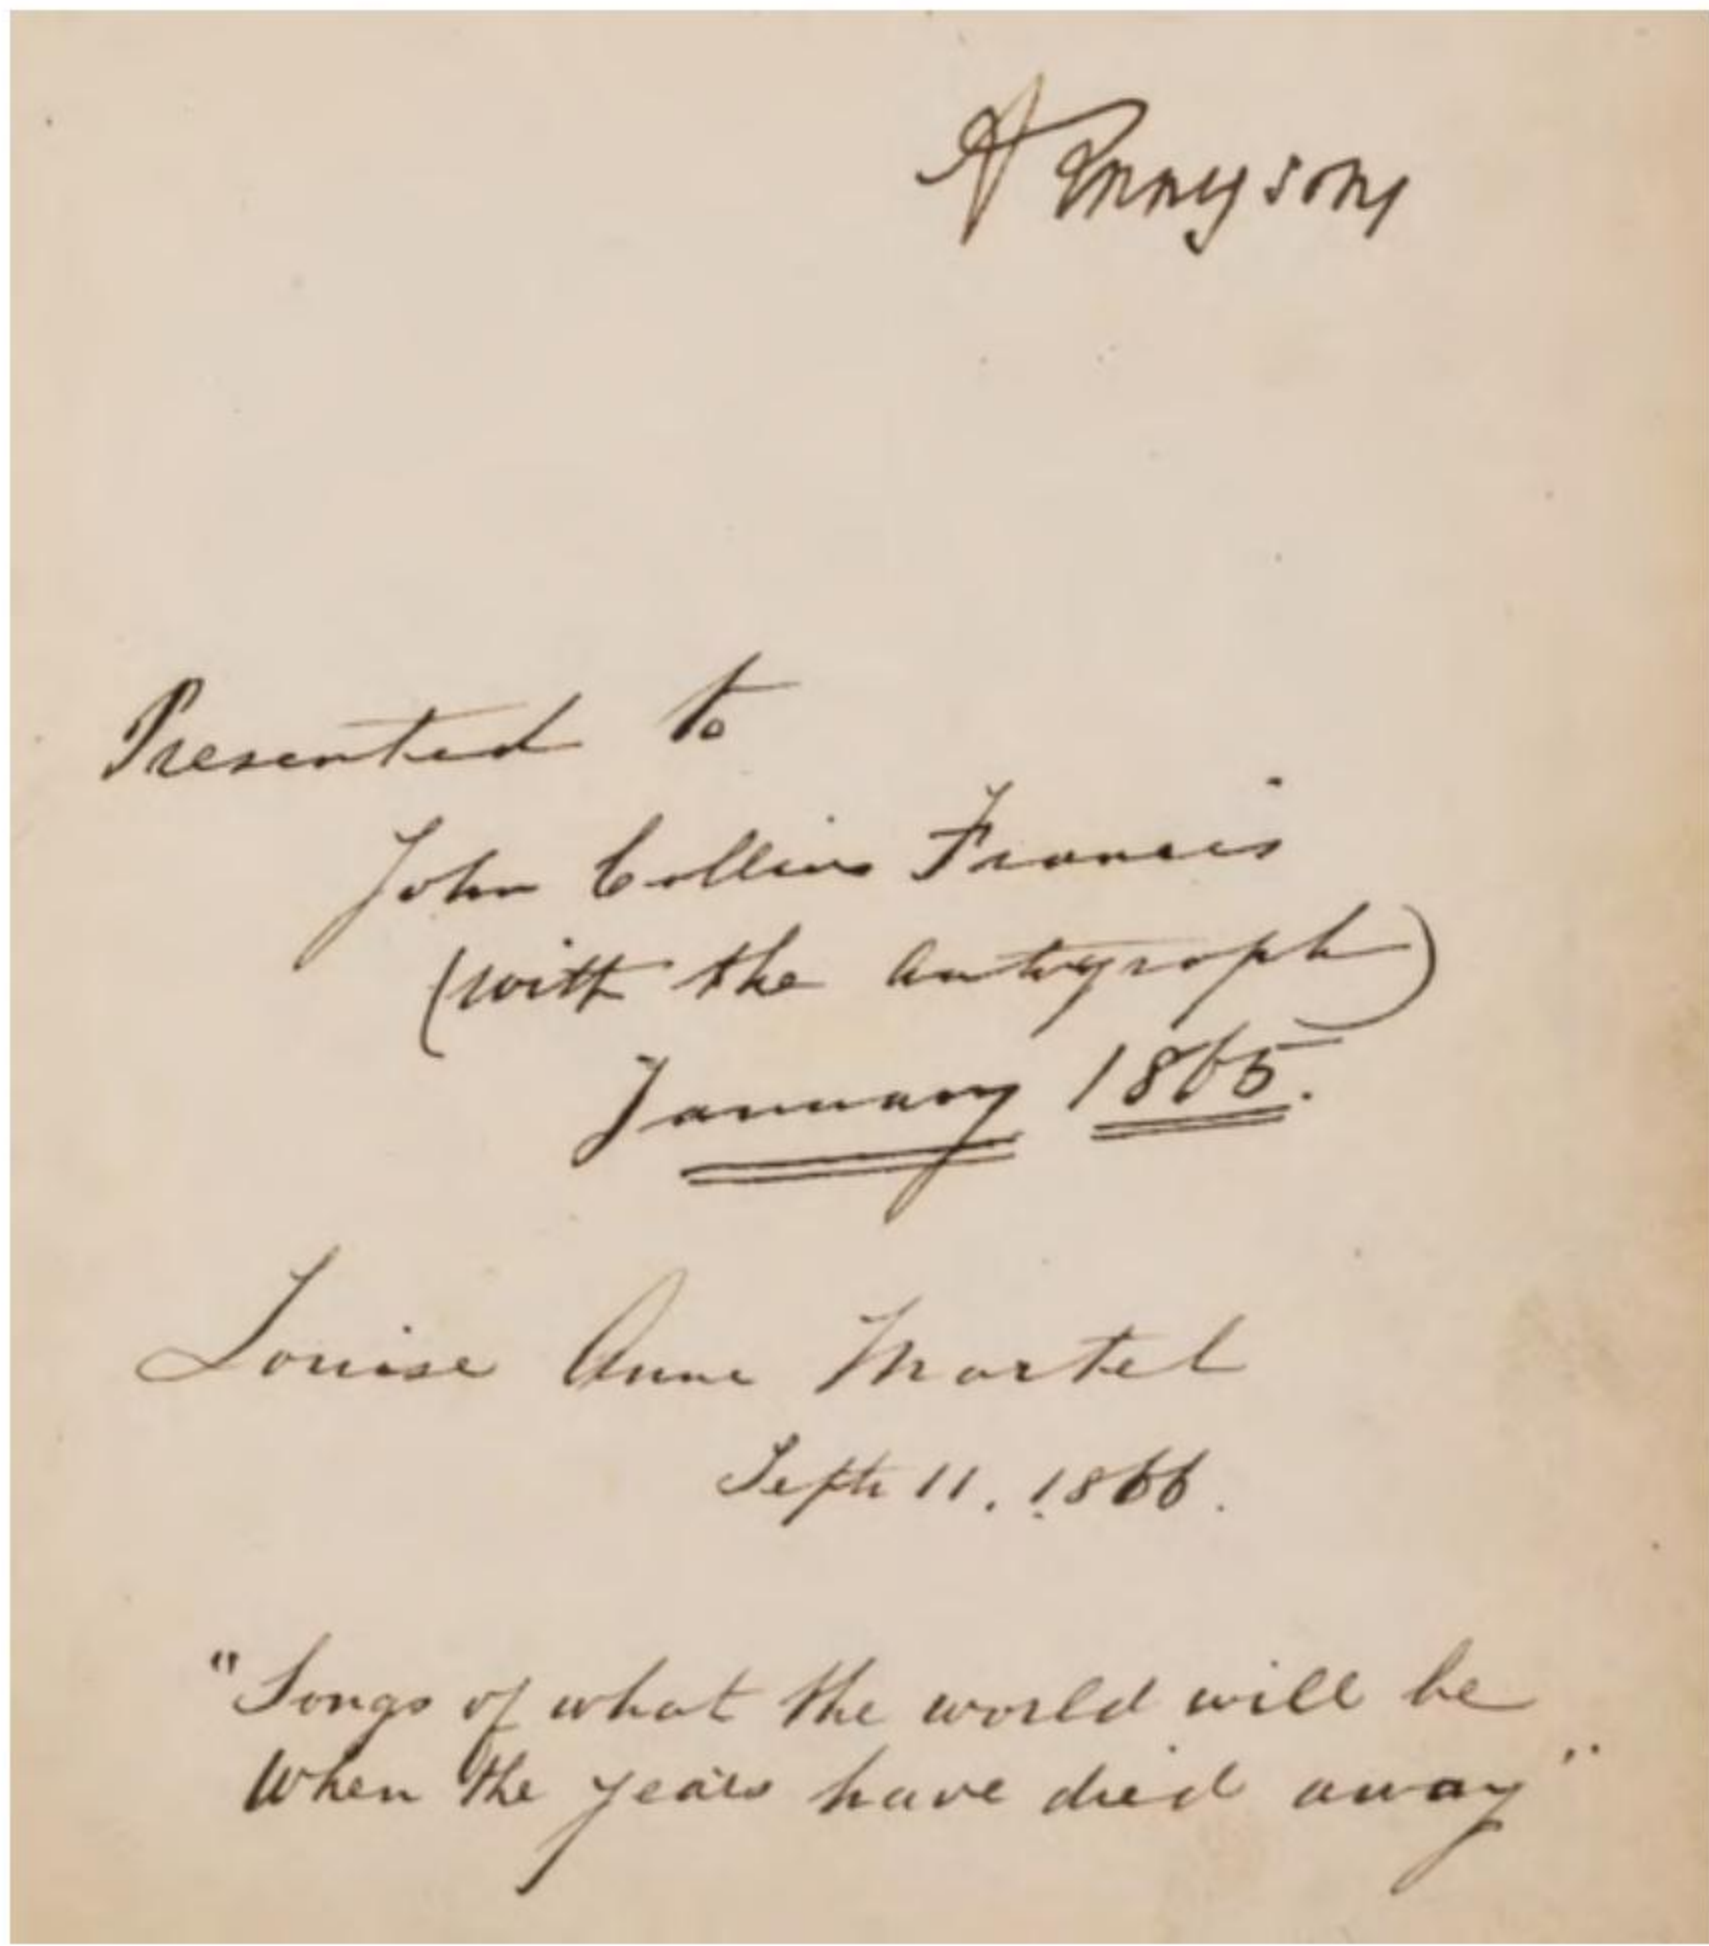 A Tennyson
Presented to
John Collins Francis
(with the autograph)
January 1865.
Louise Anne Martel
Septr 11. 1866.
"Songs of what the world will be
When the years have died away"